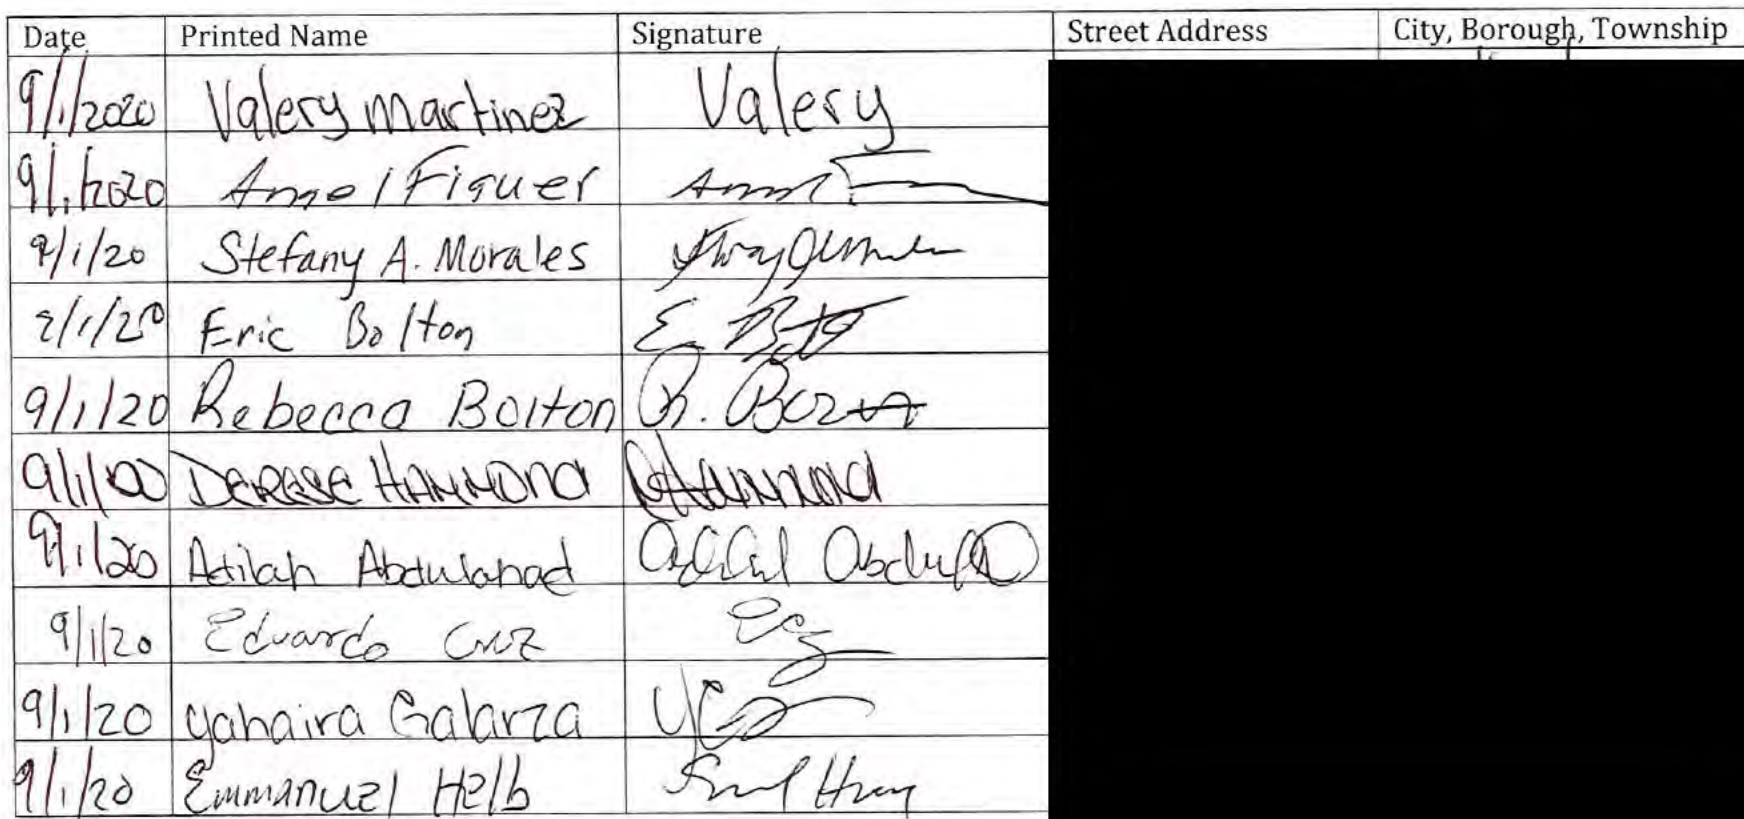 Date Printed Name Signature Street Address City, Borough, Township
9/1/2020 Valery Martinez Valery
9/1/2020 Angel Figuer
9/1/20 Stefany A. Morales
9/1/20 Eric Bolton E. Bolton
9/1/20 Rebecca Bolton R. Bolton
9/1/20 DERESE HAMMOND DHammond
9/1/20 Adilah Abdulahad
9/1/20 Eduardo Cruz
9/1/20 Yahaira Galarza
9/1/20 Emmanuel Helb